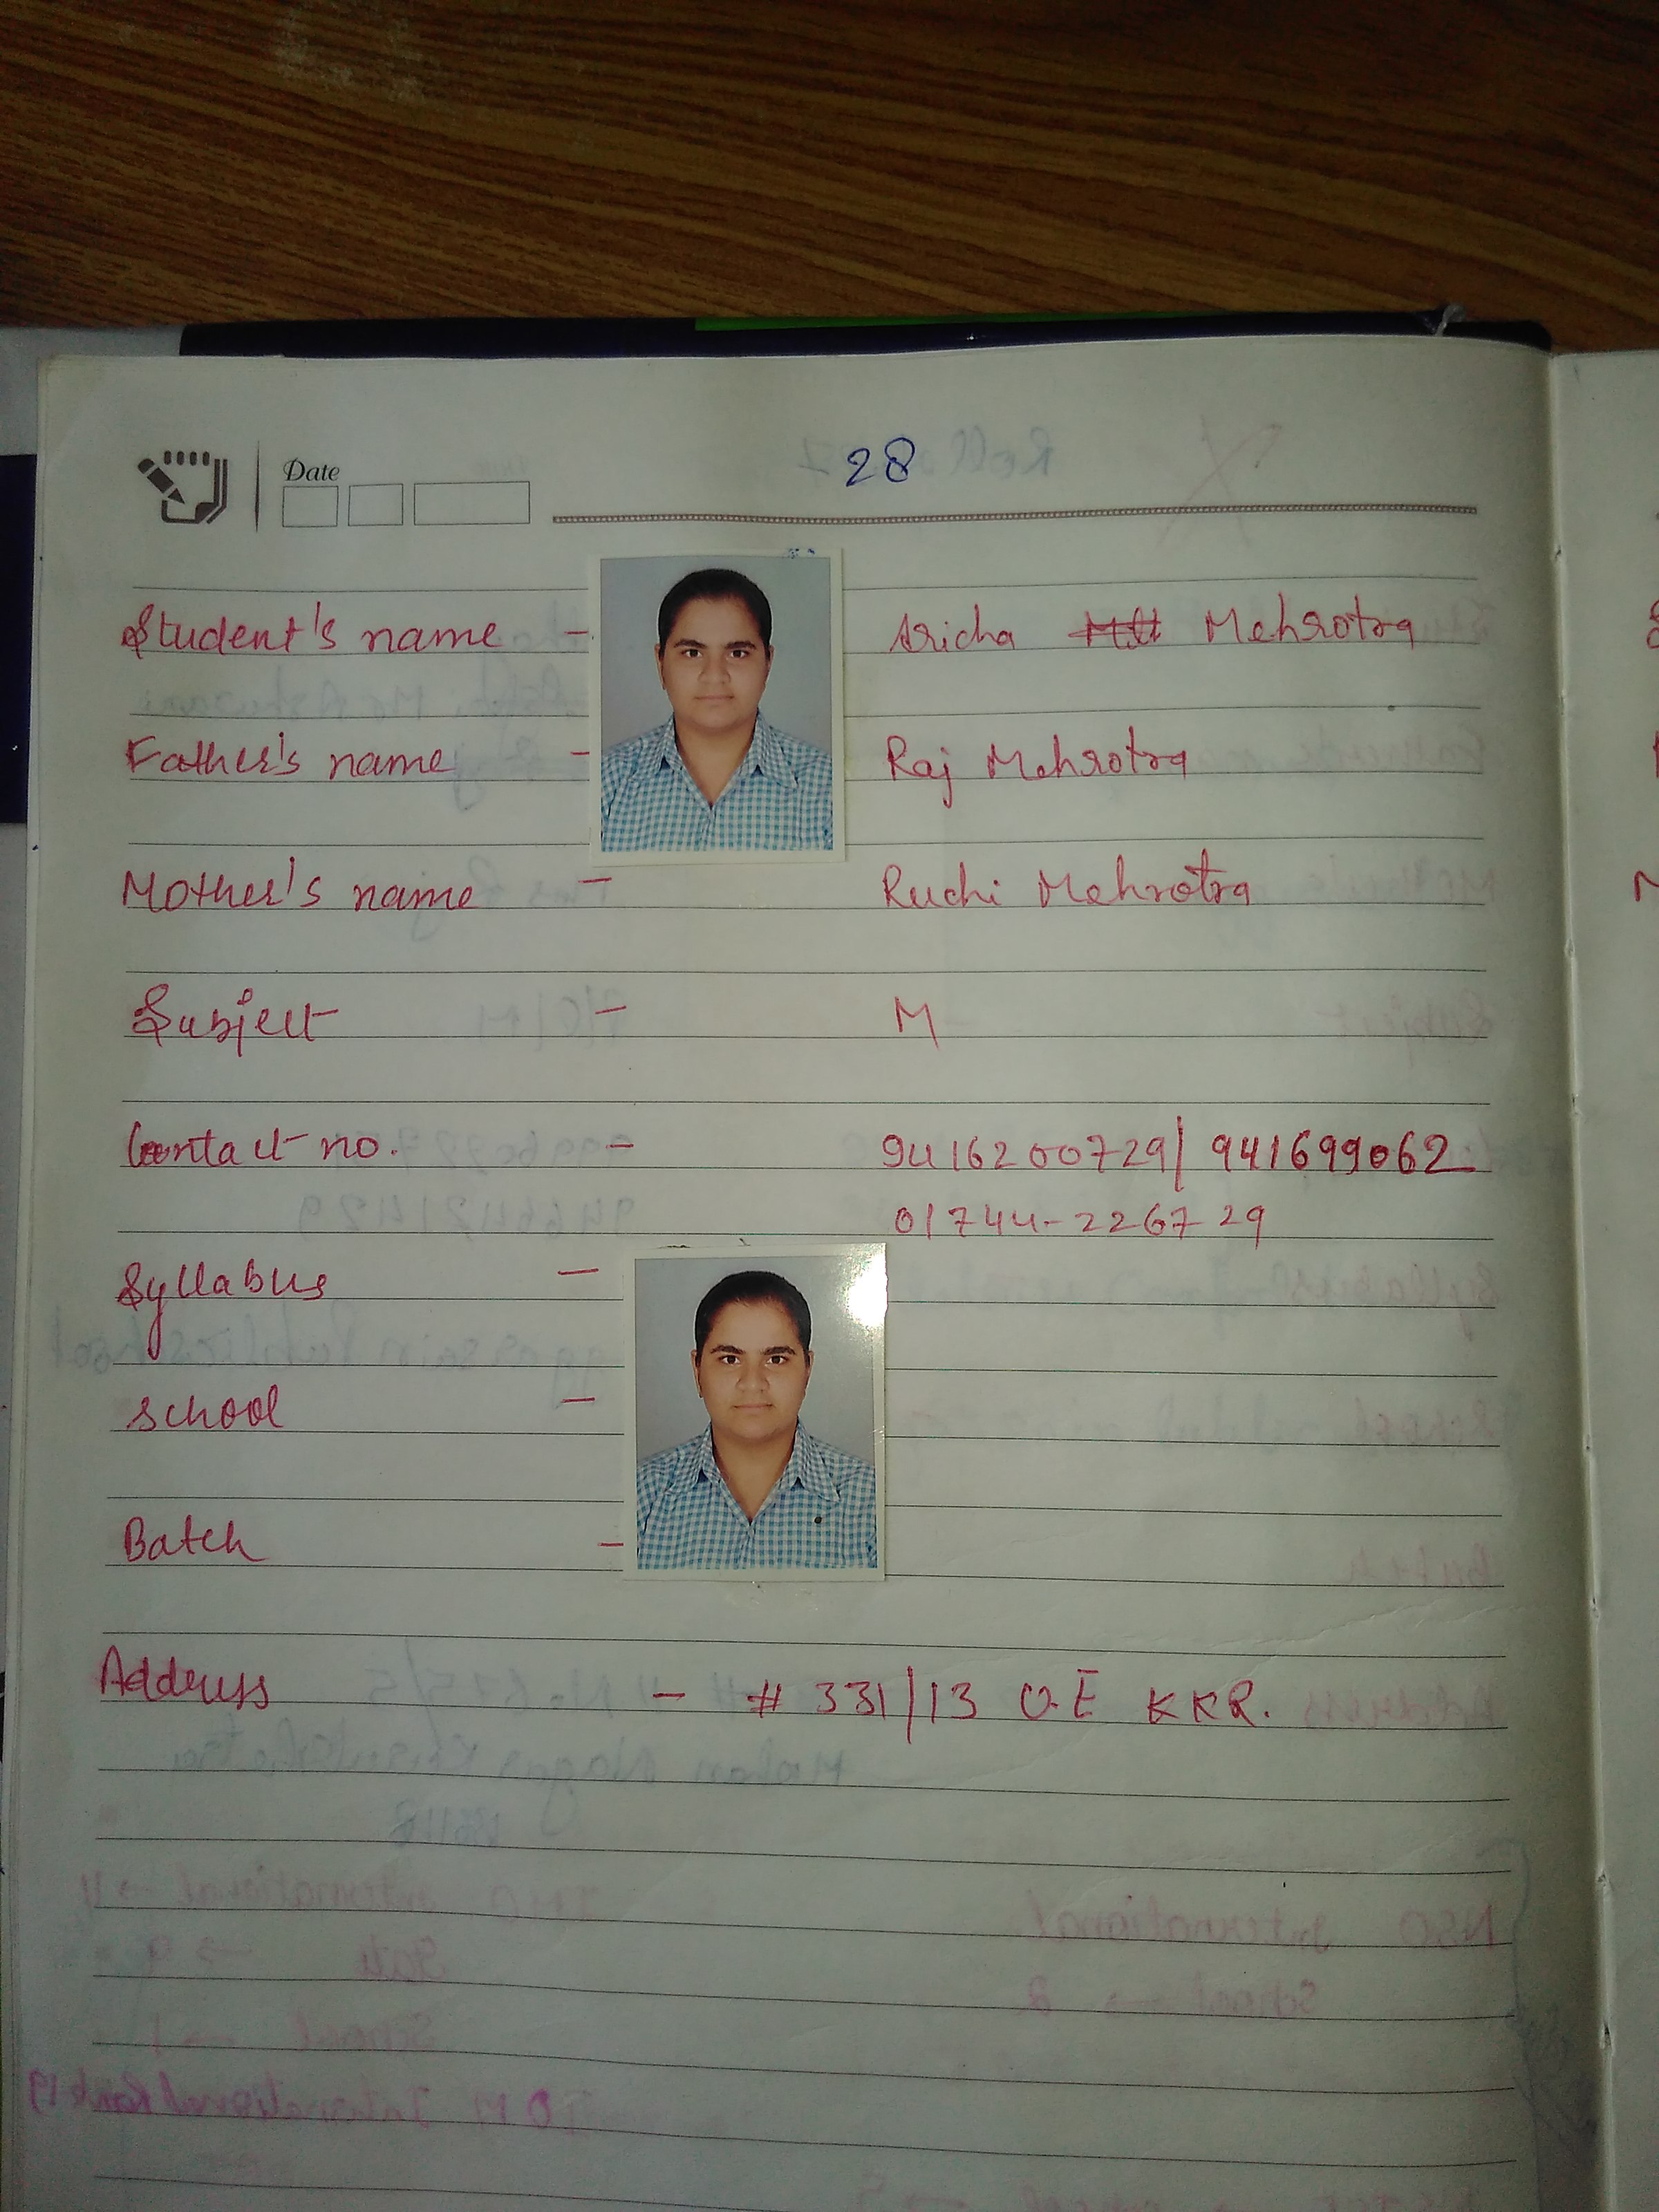 Date
28
Student's name - Aricha Mehrotra
Father's name - Raj Mehrotra
Mother's name - Ruchi Mehrotra
Subject - M
Contact no. - 9416200729/ 941699062
01744-226729
Syllabus -
School -
Batch -
Address - # 331/13 U.E KKR.